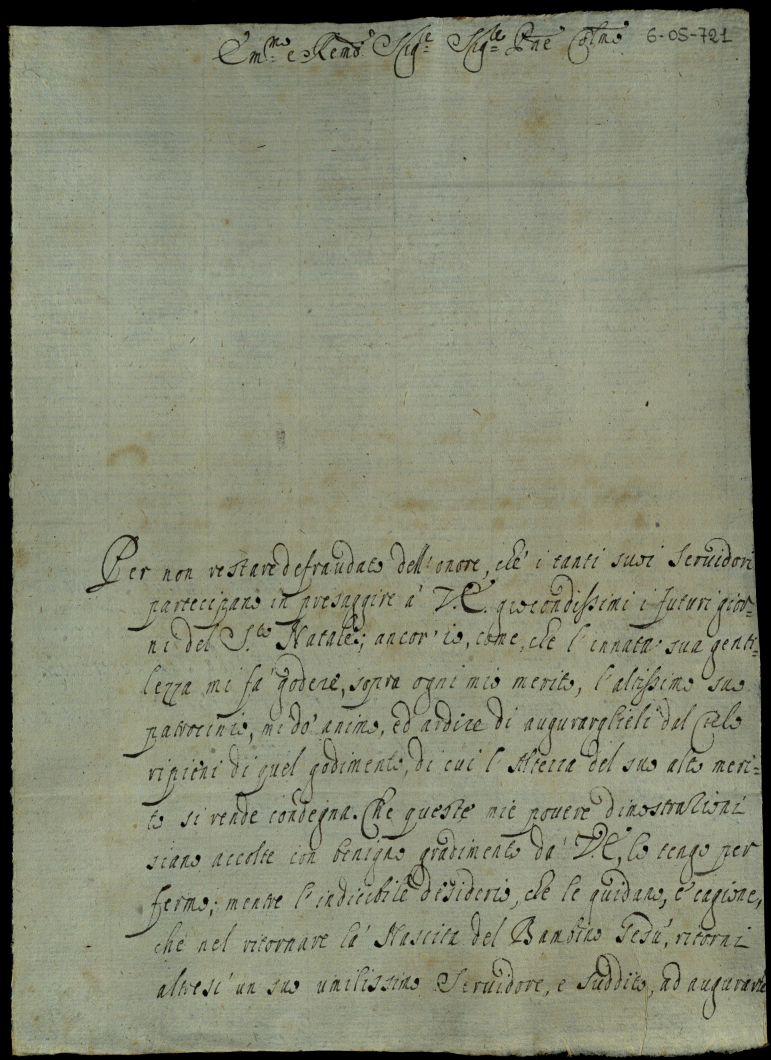 Em.mo e Rem.o Sig.re Sig.re Pne Colmo 6-05-721
Per non restare defraudato dell'onore, ché i tanti suoi Servidori
partecipano in presaggire à V.E. giocondissimi i futuri gior-
ni del S.to Natale; ancor'io, come, che l'innata sua genti-
lezza mi fà godere, sopra ogni mio merito, l'altissimo suo
patrocinio, mi dò animo, ed ardire di augurarglieli dal Cielo
ripieni di quel godimento, di cui l'Altezza del suo alto meri-
to si rende condegna. Che queste mie povere dimostrazioni
siano accolte con benigno gradimento da V.E., lo tengo per
fermo; mentre l'indicibile desiderio, che le guidano, è cagione,
che nel ritornare la Nascita del Bambino Gesù, ritorni
altresì un suo umilissimo Servidore, e Suddito, ad augurarle